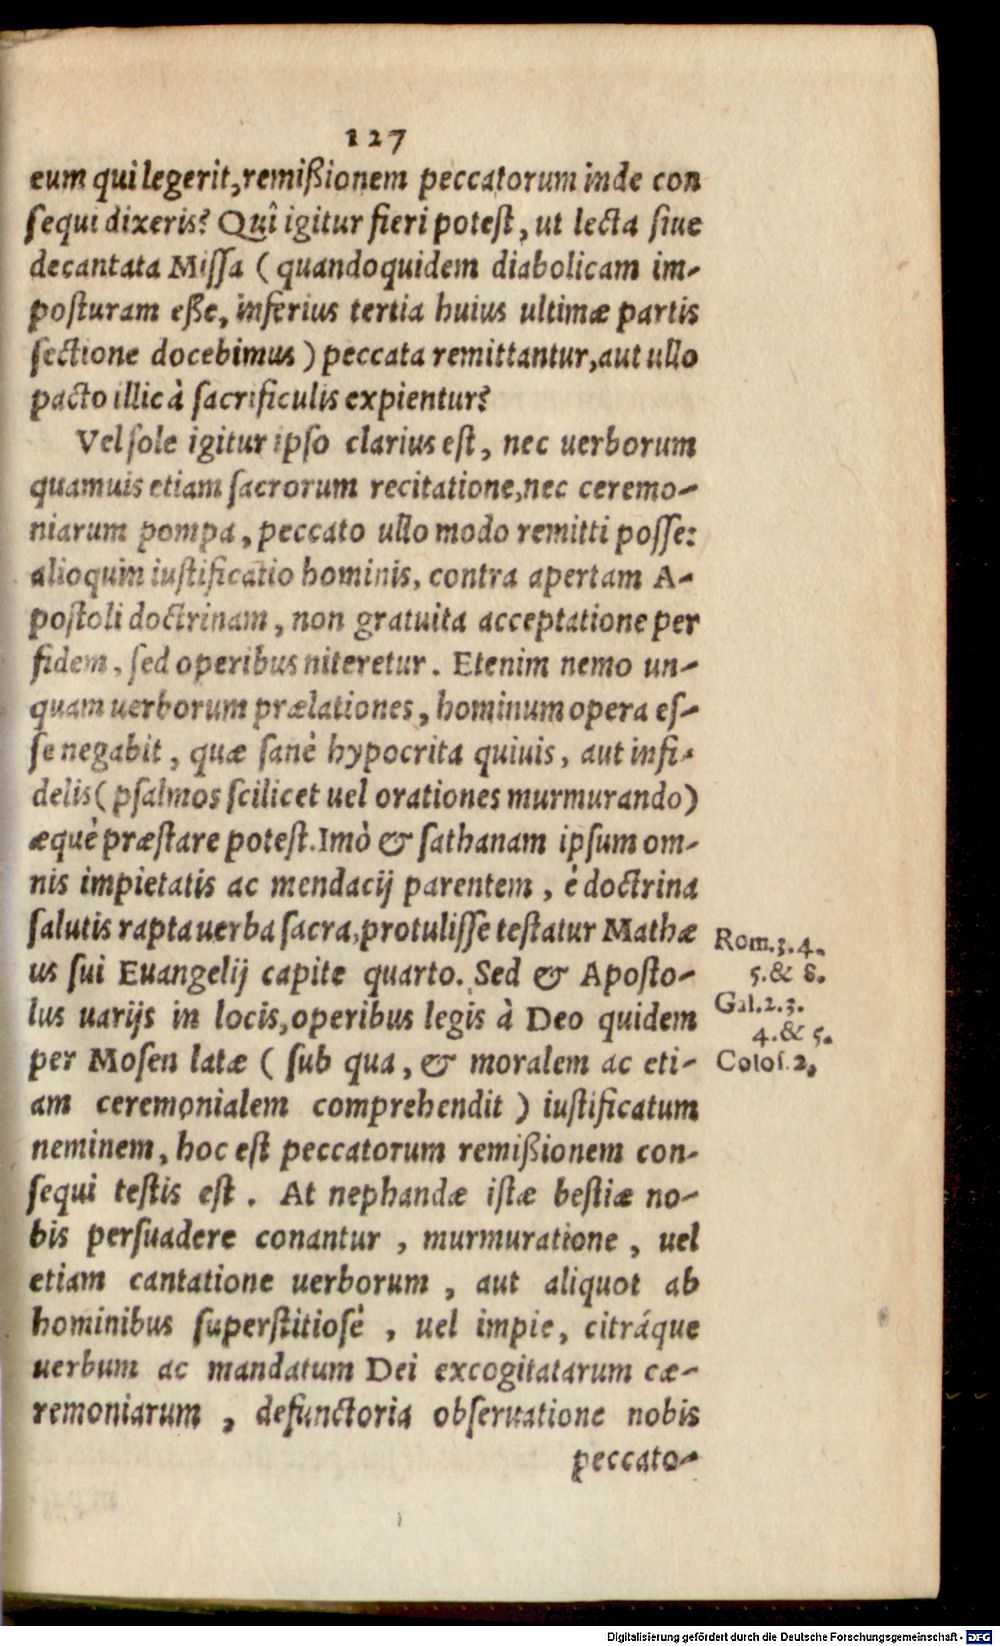 127
eum qui legerit, remißionem peccatorum inde con
sequi dixeris? Quî igitur fieri potest, ut lecta siue
decantata Missa ( quandoquidem diabolicam im-
posturam eße, inferius tertia huius ultimæ partis
sectione docebimus ) peccata remittantur, aut ullo
pacto illic à sacrificulis expientur?
Vel sole igitur ipso clarius est, nec uerborum
quamuis etiam sacrorum recitatione, nec ceremo-
niarum pompa, peccato ullo modo remitti posse:
alioquim iustificatio hominis, contra apertam A-
postoli doctrinam, non gratuita acceptatione per
fidem, sed operibus niteretur. Etenim nemo un-
quam uerborum prælationes, hominum opera es-
se negabit, quæ sanè hypocrita quiuis, aut infi-
delis ( psalmos scilicet uel orationes murmurando)
æquè præstare potest. Imò & sathanam ipsum om-
nis impietatis ac mendacij parentem, è doctrina
salutis rapta uerba sacra, protulisse testatur Mathæ
us sui Euangelij capite quarto. Sed & Aposto-
lus uarijs in locis, operibus legis à Deo quidem
per Mosen latæ ( sub qua, & moralem ac eti-
am ceremonialem comprehendit ) iustificatum
neminem, hoc est peccatorum remißionem con-
sequi testis est. At nephandæ istæ bestiæ no-
bis persuadere conantur, murmuratione, uel
etiam cantatione uerborum, aut aliquot ab
hominibus superstitiosè, uel impie, citráque
uerbum ac mandatum Dei excogitatarum cæ-
remoniarum, defunctoria obseruatione nobis
peccato-
Rom.3.4.
5.& 8.
Gal.2.3.
4.& 5.
Colos.2,
Digitalisierung gefördert durch die Deutsche Forschungsgemeinschaft - DFG